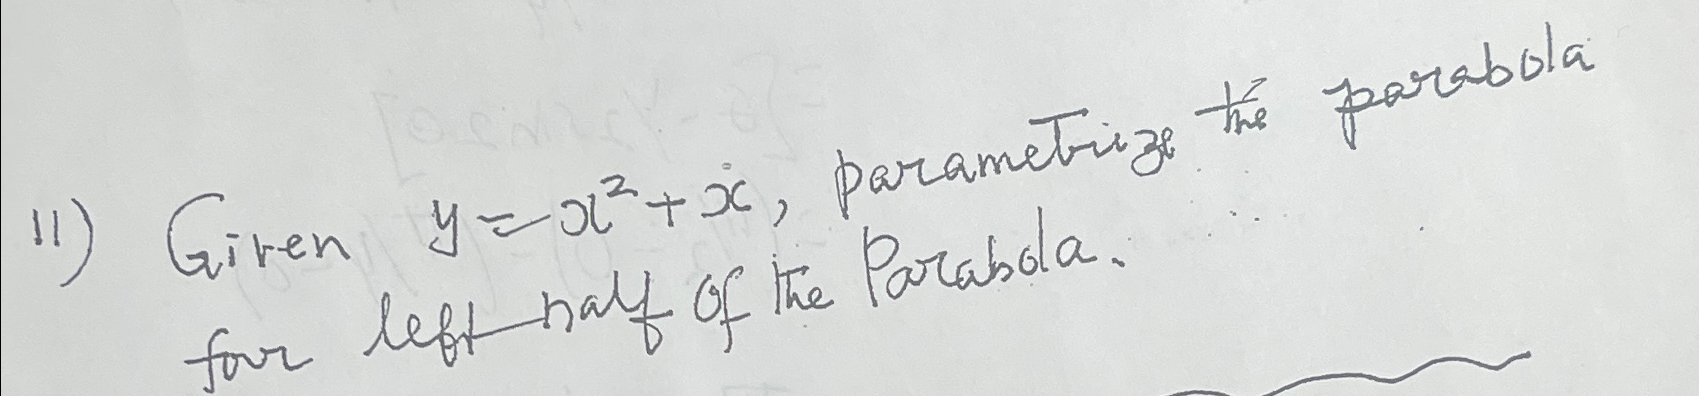 11) Given y = x² + x, parametrize the parabola
four left half of the Parabola.